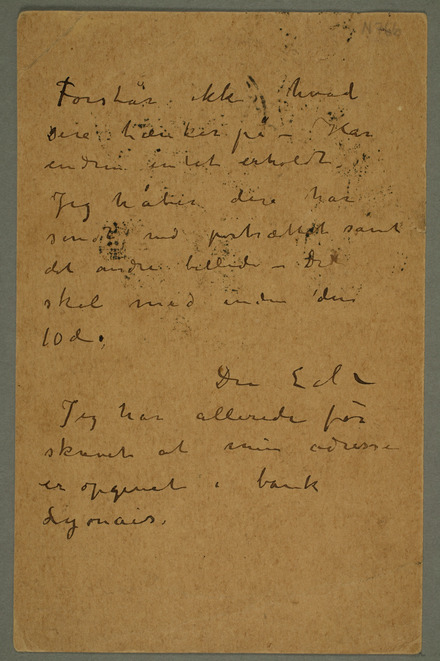 N 766
Forstår ikke hvad
Dere tænker på – Har
endnu intet erholdt.
Jeg håber dere har
sendt med portrættet samt
det andre billede – De
skal med inden den
10de.
Din Edv
Jeg har allerede før
skrevet at min adresse
er opgivet i bank
Lyonais.